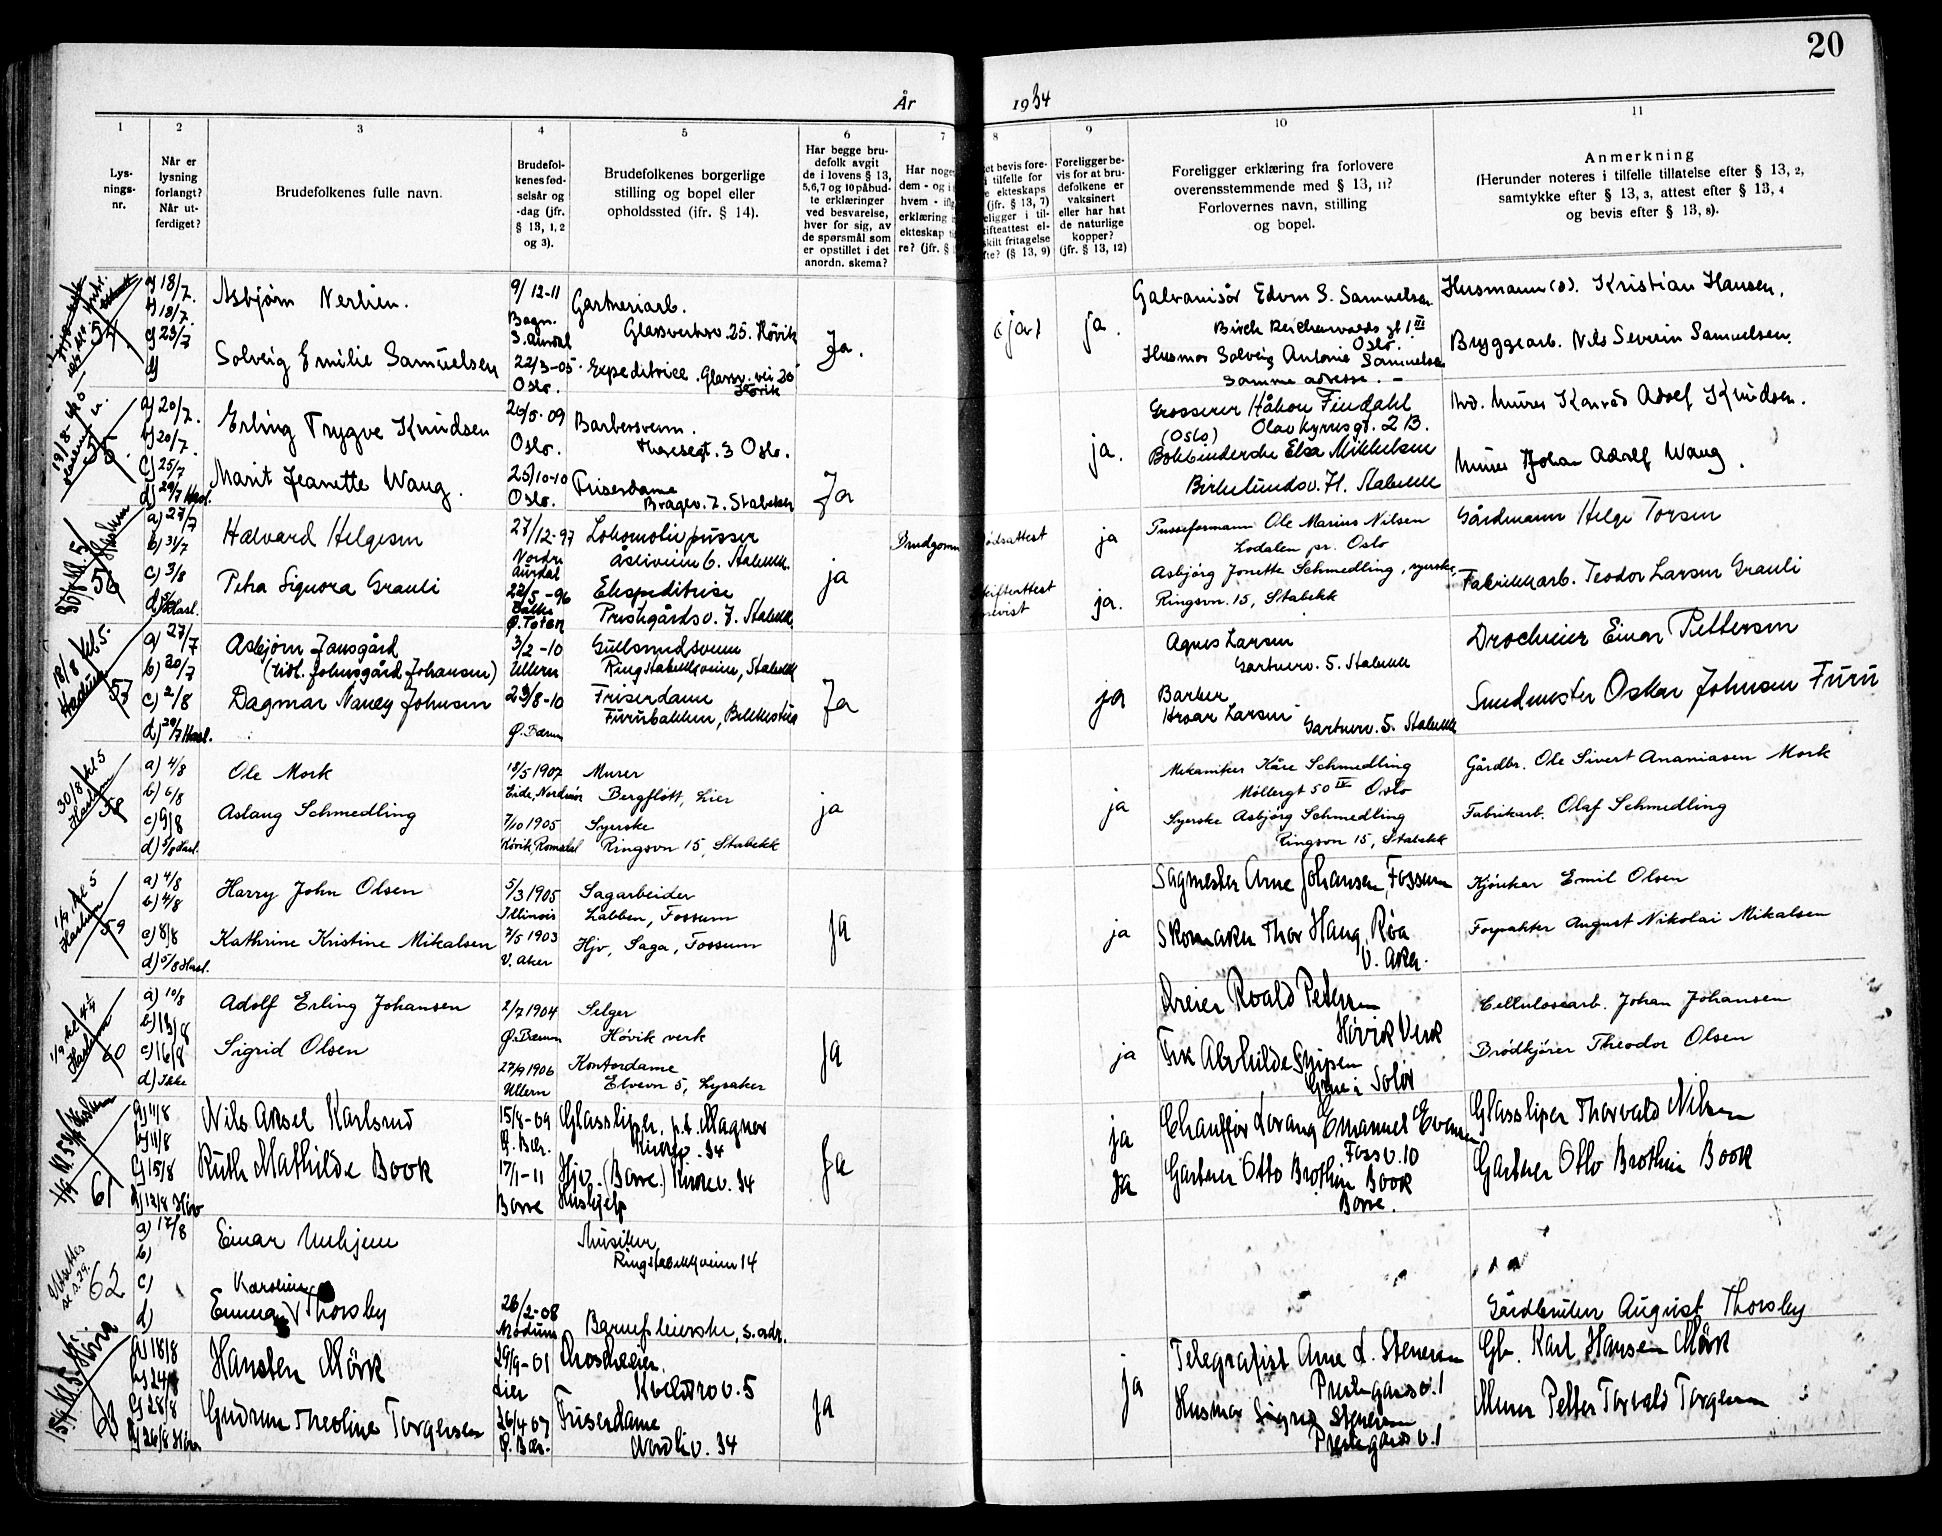 20
År 1934
1 2 3 4 5 6 7 8 9 10 11
Lys-
nings-
nr.
Når er
lysning
forlangt?
Når ut-
ferdiget?
Brudefolkenes fulle navn.
Brudefol-
kenes fød-
selsår og
-dag (jfr.
§ 13, 1, 2
og 3).
Brudefolkenes borgerlige
stilling og bopel eller
opholdssted (ifr. § 14).
Har begge bru-
defolk avgit
de i lovens § 13,
5,6,7 og 10 påbud-
te erklæringer
ved besvarelse,
hver for sig, av
de spørsmål som
er opstillet i det
anordn. skema?
Har noge
dem - og i
hvem - ifl
erklæring
ekteskap ti
re? (jfr. §
et bevis fore-
i tilfelle for
e ekteskaps
(jfr. § 13, 7)
eligger i til-
ifteattest el-
skilt fritagelse
fte? (§ 13, 9)
Foreligger be-
vis for at bru-
defolkene er
vaksinert
eller har hat
de naturlige
kopper?
(jfr. § 13, 12)
Foreligger erklæring fra forlovere
overensstemmende med § 13, 11?
Forlovernes navn, stilling
og bopel.
Anmerkning
(Herunder noteres i tilfelle tillatelse efter § 13, 2,
samtykke efter § 13, 3, attest efter § 13, 4
og bevis efter § 13, 8).
54
a) 18/7.
b) 18/7.
c) 23/7
d)
Asbjørn Nerlien.
9/12-11
Bagn.
S. Aurdal
Gartneriarb.
Glassverksv. 25. Høvik
Solveig Emilie Samuelsen
22/3-05.
Oslo.
Expeditrice. Glassv. vei 25
Høvik
Ja.
(ja)
ja.
Galvanisør Edvin S. Samuelsen
Birch Reichenwalds gt 1 III
Oslo.
Husmor Solveig Antonie Samuelsen
Samme adresse. -
Husmann (d). Kristian Hansen.
Bryggearb. Nils Severin Samuelsen.
55
a) 20/7.
b) 20/7.
c) 25/7
d) 29/7 Hasl.
Erling Trygve Knudsen
26/5-09
Oslo.
Barbersvenn.
Theresegt. 3 Oslo.
Marit Jeanette Wang.
25/10-10
Oslo.
Friserdame
Bragev. 7. Stabekk
Ja
ja.
Grosserer Håkon Findahl
(Oslo) Olav Kyrresgt. 2 B.
Bokbinderske Elsa Mikkelsen
Birkelundsv. 71. Stabekk
Avd. Murer Konrad Adolf Knudsen.
Murer Johan Adolf Wang.
30/8 kl. 5
Haslum
56
a) 27/7
b) 31/7
c) 3/8
d) 5/8 Hasl.
Halvard Helgesen
27/12-97
Nordre
Aurdal
Lokomotivpusser
Åsliveien 6. Stabekk.
Petra Signora Grauli
22/5-96
Balke
Ø. Toten
Ekspeditrise
Prestegårdsv. 7. Stabekk
ja
Brudgommen
dødsattest
Skifteattest
ja
ja.
Pusseformann Ole Marius Nilsen
Lodalen pr. Oslo
Asbjørg Jonette Schmedling, syerske,
Ringsvn. 15, Stabekk
Gårdmann Helge Torsen
Fabrikkarb. Teodor Larsen Grauli
18/8 kl. 5
Haslum
57
a) 27/7
b) 30/7
c) 2/8
d) 29/7 Hasl.
Asbjørn Jansgård
(tidl. Johnsgård Johansen)
3/2-10
Ullern
Gullsmedsvenn
Ringstabekkveien, Stabekk
Dagmar Nancy Johnsen
23/8-10
Ø. Bærum
Friserdame
Furubakken, Bekkestua
Ja
ja
Agnes Larsen
Gartnerv. 5. Stabekk
Barber
Hroar Larsen
Gartnerv. 5. Stabekk
Droscheier Einar Pettersen
Smedmester Oskar Johnsen Furu
30/8 kl 5
Haslum
58
a) 4/8
b) 6/8
c) 9/8
d) 5/8 Hasl.
Ole Mork
18/5 1907
Eide, Nordmør
Murer
Bergflott, Lier
Aslaug Schmedling
7/10 1905
Høvik, Romsdal
Syerske
Ringsvn 15, Stabekk
ja
ja
Mekaniker Kåre Schmedling
Møllergt 50 IV Oslo
Syerske Asbjørg Schmedling
Ringsvn 15, Stabekk
Gårdbr. Ole Sivert Ananiasen Mork
Fabrikarb. Olaf Schmedling
1/9 kl 5
Haslum
59
a) 4/8
b) 4/8
c) 8/8
d) 5/8 Hasl.
Harry John Olsen
5/3 1905
Illinois
Sagarbeider
Labben, Fossum
Kathrine Kristine Mikalsen
7/5 1903
V. Aker
Hjv, Saga, Fossum
Ja
ja
Sagmester Arne Johansen, Fossum
Skomaker Thor Haug, Røa
V. Aker.
Kjørekar Emil Olsen
Forpakter August Nikolai Mikalsen
1/9 kl 4 1/4
Haslum
60
a) 10/8
b) 13/8
c) 16/8
d) Ikke
Adolf Erling Johansen
2/7 1904
Ø. Bærum
Selger
Høvik verk
Sigrid Olsen
27/9 1906
Ullern
Kontordame
Elvevn 5, Lysaker
Ja
ja
Dreier Roald Petersen
Høvik Verk
Frk Alvhilde Snipen
Grue i Solør
Cellulosearb. Johan Johansen
Brødkjører Theodor Olsen
61
a) 11/8
b) 11/8
c) 15/8
d) 12/8 Høv
Nils Aksel Karlsrud
15/8-09
Ø. Bær.
Glassliper, p.t. Wagner
Kirkev. 34
Ruth Mathilde Book
17/1-11
Borre
Hjv. (Borre.) Kirkev. 34
Hushjelp
Ja
ja
Ja
Chauffør Lorang Emanuel Evensen
Fossv. 10
Gartner Otto Brothin Book
Borre.
Glassliper Thorvald Nilsen
Gartner Otto Brothin Book
Utsettes
se s. 29.
62
a) 17/8
b)
c)
d)
Einar Unhjem
Musiker
Ringstabekkveien 14
Karoline
Emma V Thorsby
26/2-08
Modum
Barnepleierske, s. adr.
Gårdbruker August Thorsby
15/9 kl. 5 1/2 Høvik
63
a) 18/8
b) 24/8
c) 28/8
d) 26/8 Høv
Hansten Mörk
29/9-01
Lier
Droscheeier.
Kveldrov. 5
Gudrun Theoline Torgersen
26/4 07
Ø. Bær.
Friserdame
Nordliv. 34
Ja
ja
Telegrafist Arne L. Stenersen
Prestegårdsv. 1
Husmor Sigrid Stenersen
Prestegårds v. 1
Gb. Karl Hansen Mörk
Murer Petter Torvald Torgersen